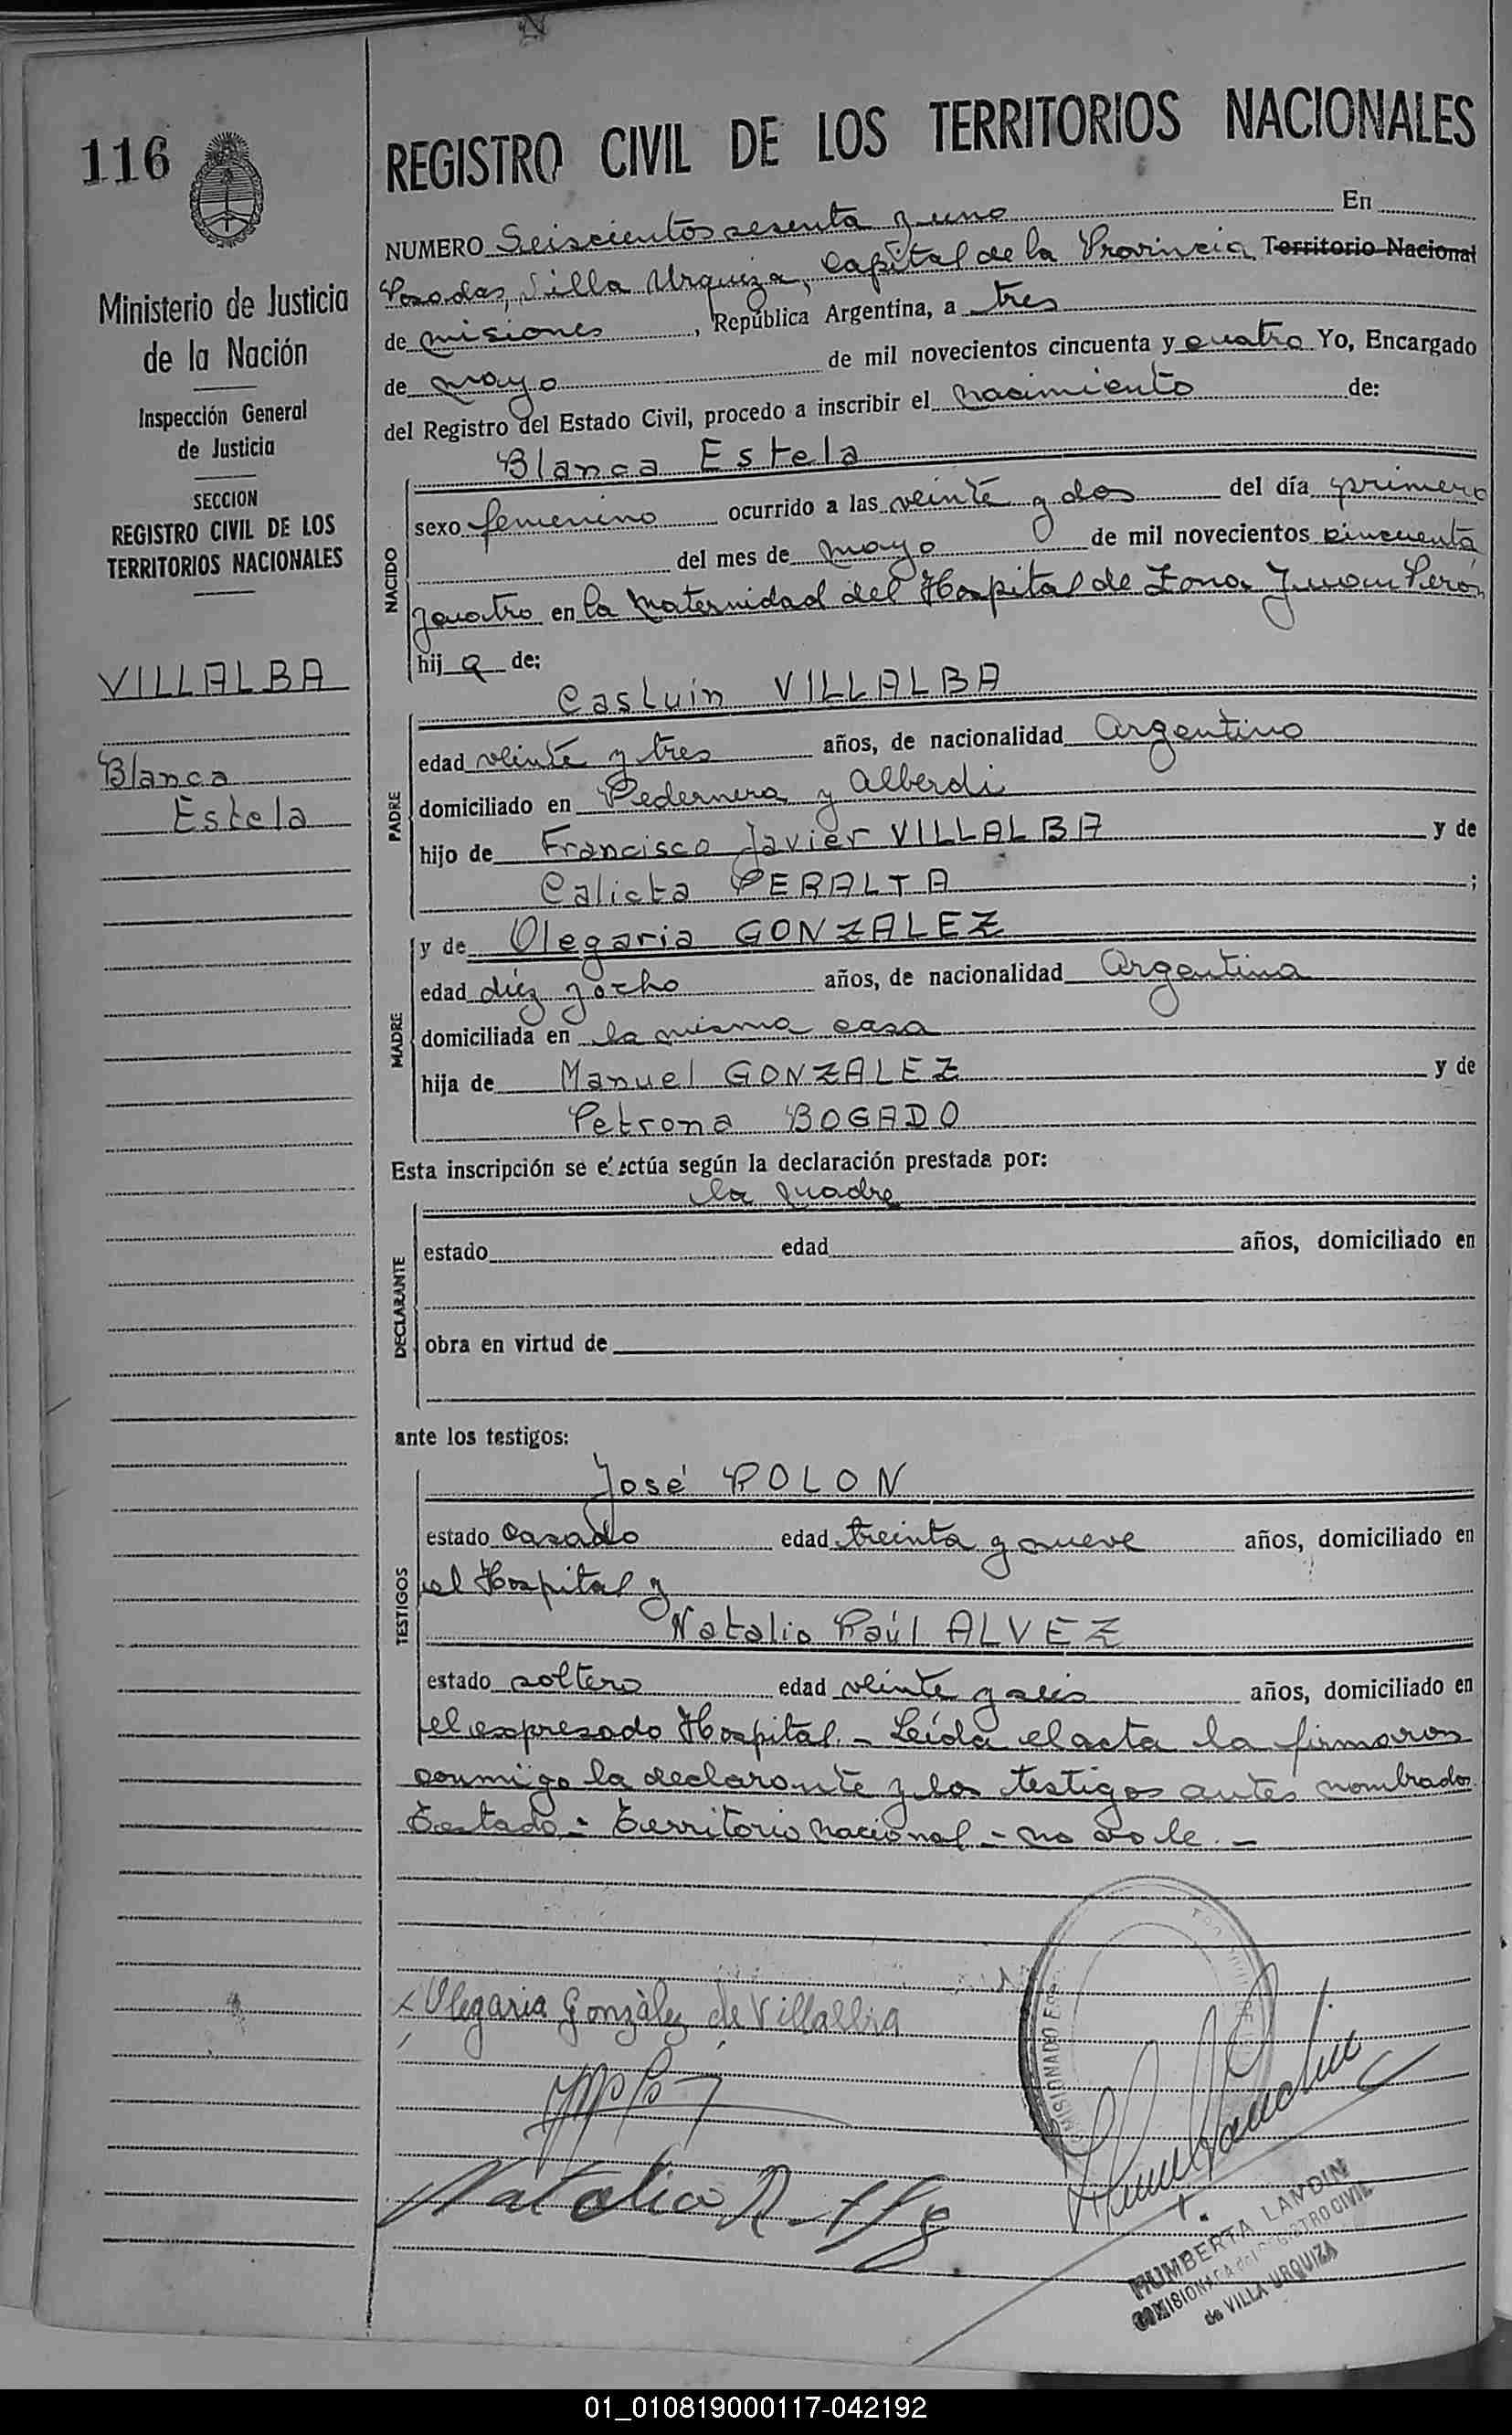 116
Ministerio de Justicia
de la Nación
Inspección General
de Justicia
SECCION
REGISTRO CIVIL DE LOS
TERRITORIOS NACIONALES
VILLALBA
Blanca
Estela
REGISTRO CIVIL DE LOS TERRITORIOS NACIONALES
NUMERO Seiscientos sesenta y uno En
Posadas, Villa Urquiza, Capital de la Provincia Territorio Nacional
de misiones, República Argentina, a tres
de mayo de mil novecientos cincuenta y cuatro Yo, Encargado
del Registro del Estado Civil, procedo a inscribir el nacimiento de:
NACIDO
Blanca Estela
sexo femenino ocurrido a las veinte y dos del día primero
del mes de mayo de mil novecientos cincuenta
y cuatro en la Maternidad del Hospital de Zona Juan Perón
hij a de:
PADRE
Casluin VILLALBA
edad veinte y tres años, de nacionalidad Argentino
domiciliado en Pedernera y Alberdi
hijo de Francisco Javier VILLALBA y de
Calicta PERALTA ;
MADRE
y de Olegaria GONZALEZ
edad diez y ocho años, de nacionalidad Argentina
domiciliada en la misma casa
hija de Manuel GONZALEZ y de
Petrona BOGADO
Esta inscripción se efectúa según la declaración prestada por:
la madre
DECLARANTE
estado edad años, domiciliado en
obra en virtud de
ante los testigos:
TESTIGOS
José POLON
estado casado edad treinta y nueve años, domiciliado en
el Hospital y
Natalio Raúl ALVEZ
estado soltero edad veinte y seis años, domiciliado en
el expresado Hospital. - Leída el acta la firmaron
conmigo la declarante y los testigos antes nombrados.
Testado - Territorio nacional - no vale. -
Olegaria Gonzàlez de Villalba
Natalio R.
HUMBERTA LANDIN
COMISIONADA del REGISTRO CIVIL
de VILLA URQUIZA
01_010819000117-042192